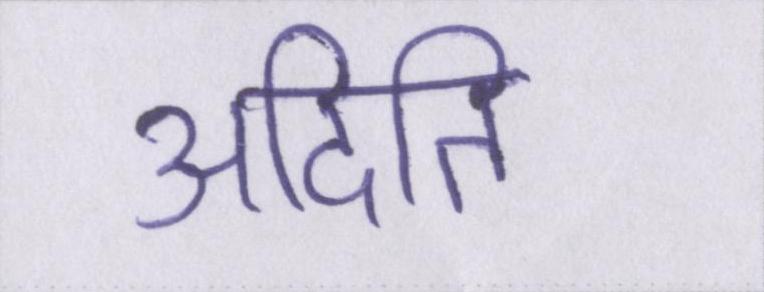 अदिति